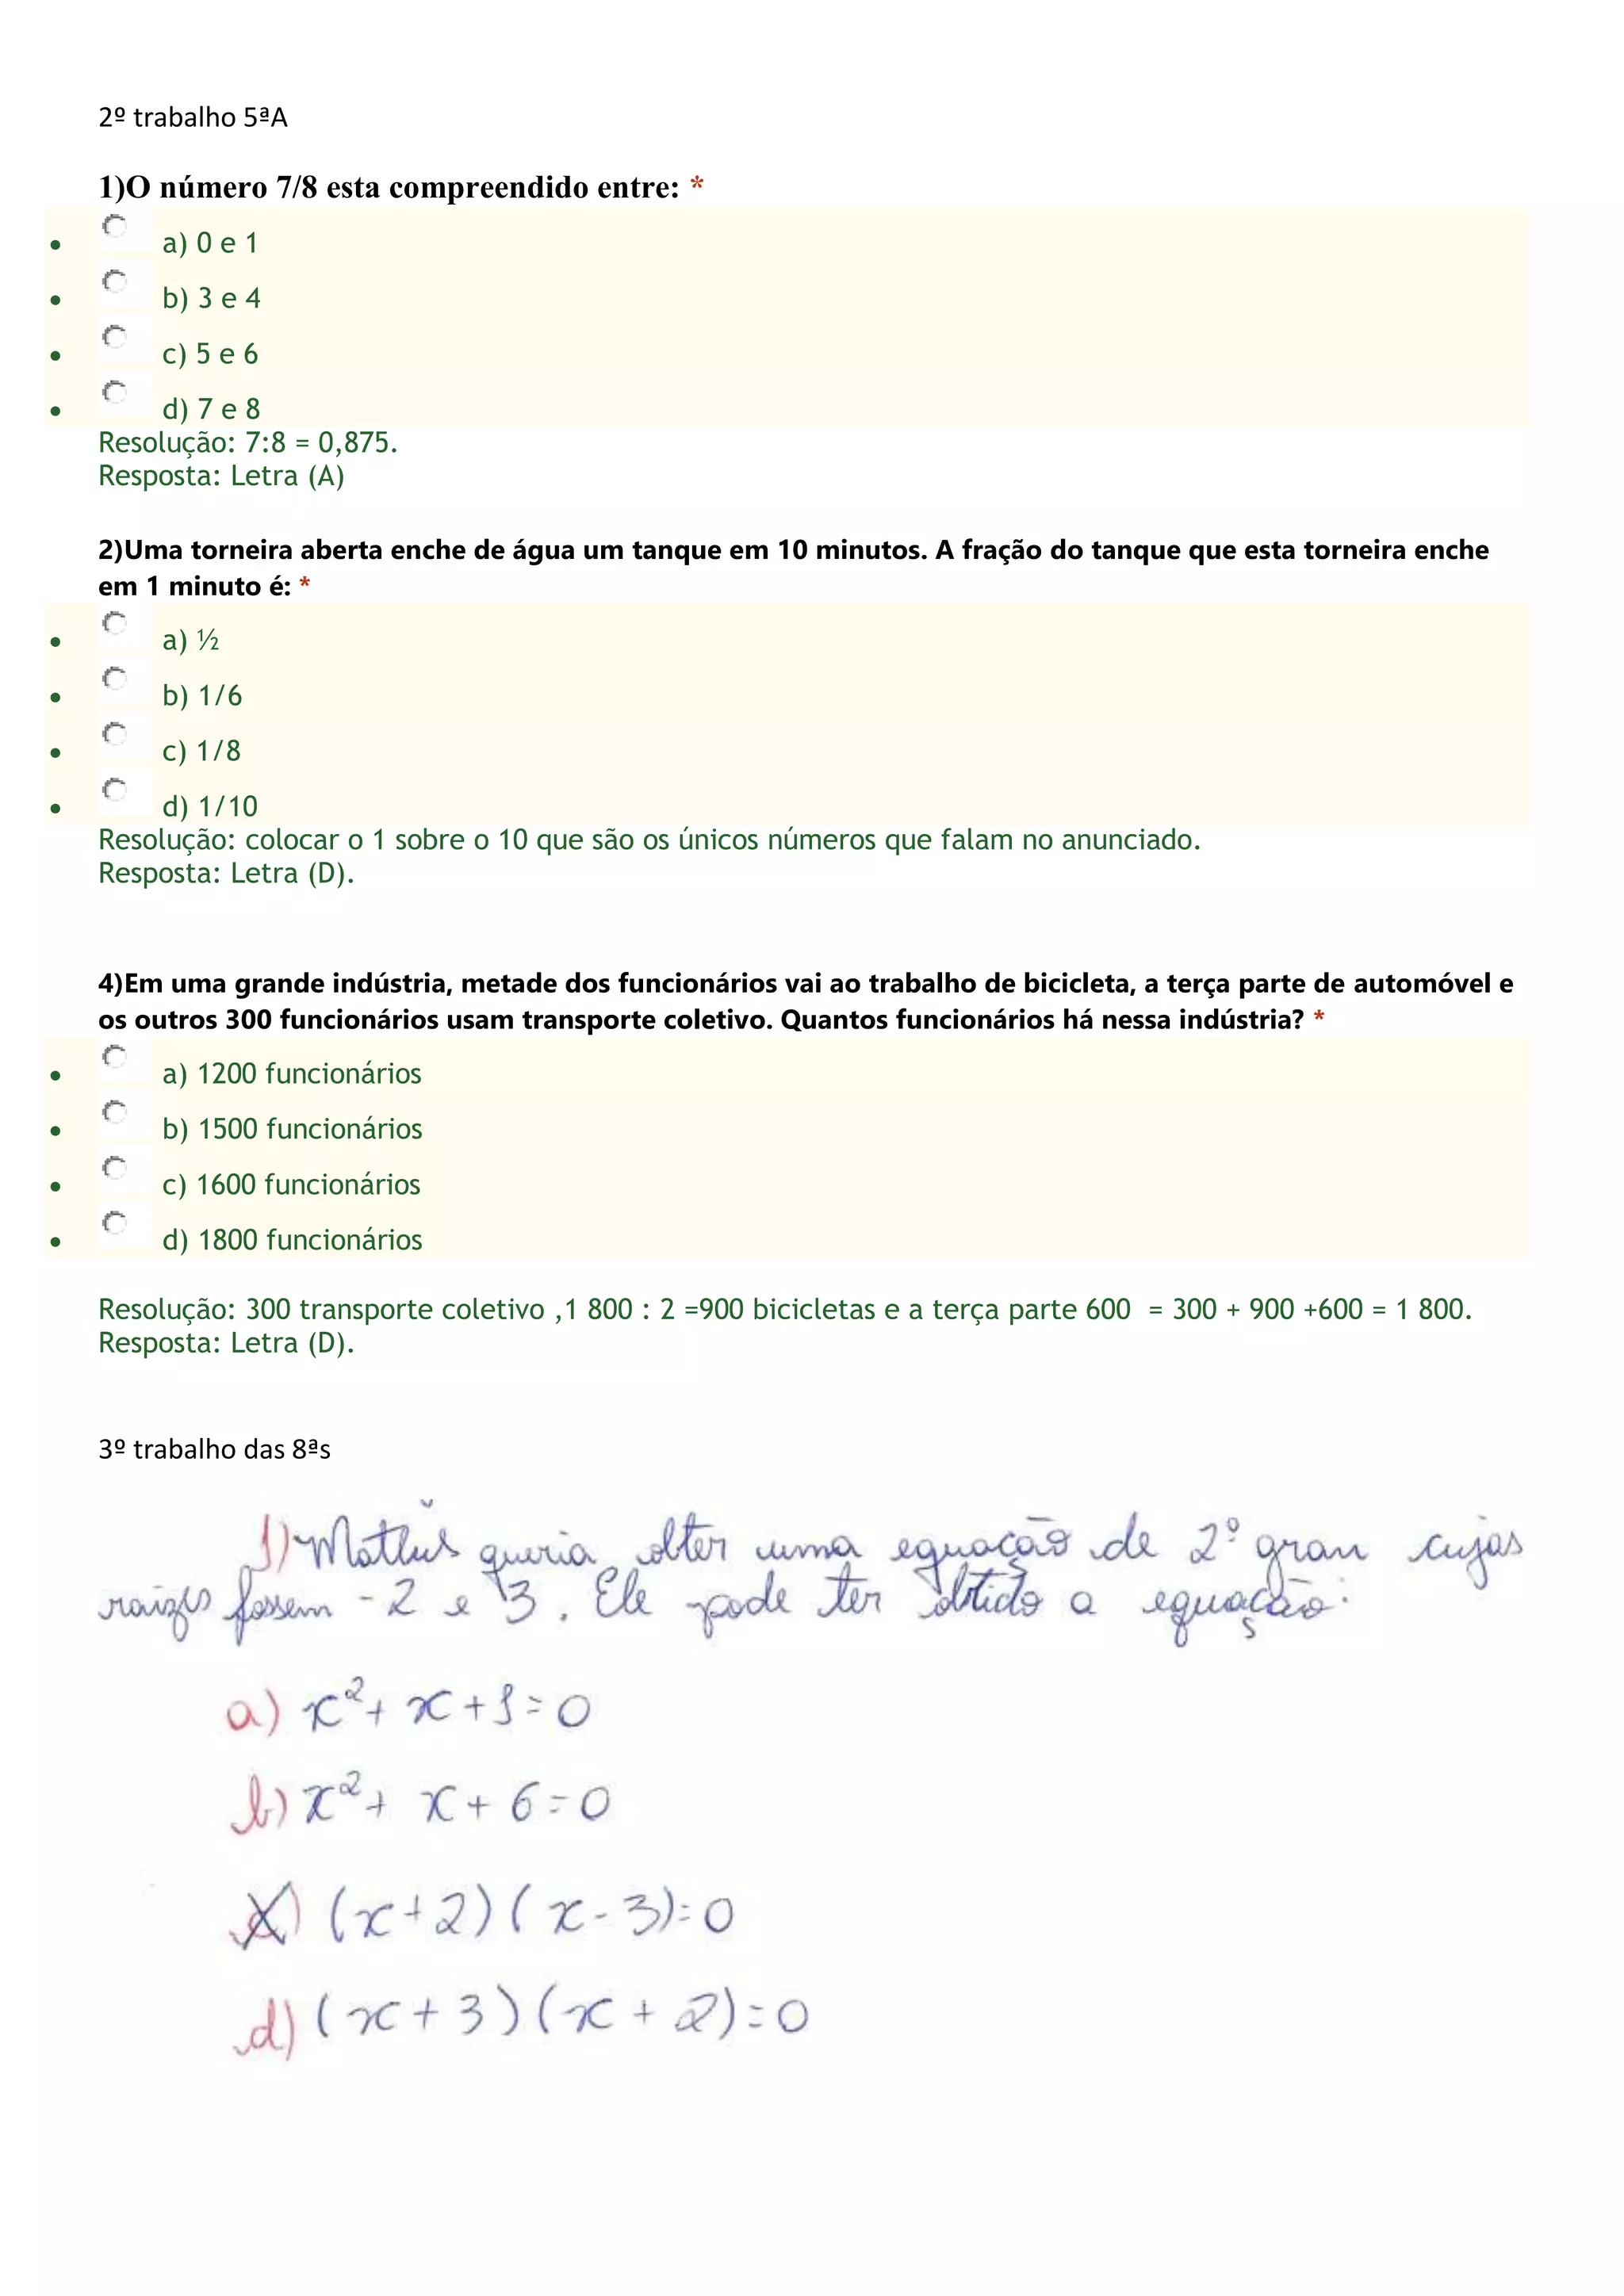 2º trabalho 5ªA
1)O número 7/8 esta compreendido entre: *
a) 0 e 1
b) 3 e 4
c) 5 e 6
d) 7 e 8
Resolução: 7:8 = 0,875.
Resposta: Letra (A)
2)Uma torneira aberta enche de água um tanque em 10 minutos. A fração do tanque que esta torneira enche
em 1 minuto é: *
a) ½
b) 1/6
c) 1/8
d) 1/10
Resolução: colocar o 1 sobre o 10 que são os únicos números que falam no anunciado.
Resposta: Letra (D).
4)Em uma grande indústria, metade dos funcionários vai ao trabalho de bicicleta, a terça parte de automóvel e
os outros 300 funcionários usam transporte coletivo. Quantos funcionários há nessa indústria? *
a) 1200 funcionários
b) 1500 funcionários
c) 1600 funcionários
d) 1800 funcionários
Resolução: 300 transporte coletivo ,1 800 : 2 =900 bicicletas e a terça parte 600 = 300 + 900 +600 = 1 800.
Resposta: Letra (D).
3º trabalho das 8ªs
1) Matheus queria obter uma equação de 2º grau cujas
raizes fossem -2 e 3. Ele pode ter obtido a equação:
a) x²+ x+1=0
b) x²+ x+6=0
c) (x+2)(x-3)=0
d) (x+3)(x+2)=0